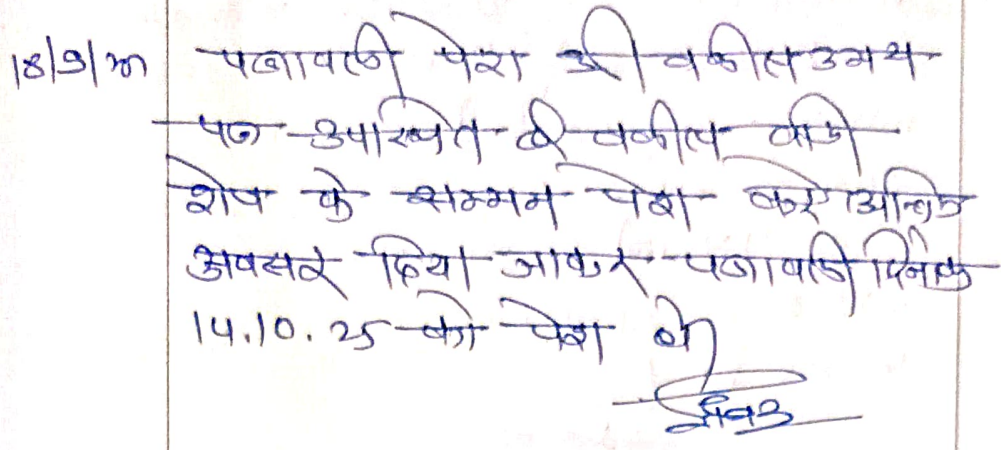 18/9/25 पत्रावली पेश हुई वकील उभय
पक्ष उपस्थित है वकील वादी
शेष के सम्मन पेश करे अन्तिम
अवसर दिया जाकर पत्रावली दिनांक
14.10.25 को पेश हो